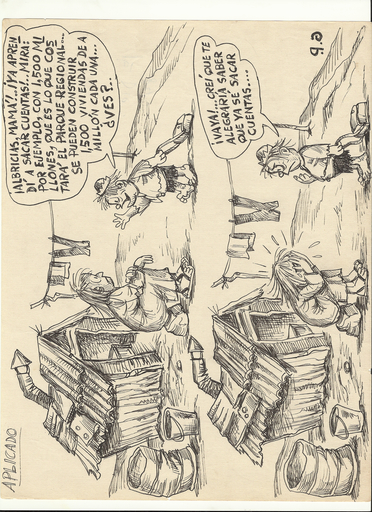 APLICADO
¡ALBRICIAS, MAMÁ!..¡YA APREN
DÍ A SACAR CUENTAS!...¡MIRA!
POR EJEMPLO, CON 1,500 MI
LLONES, QUE ES LO QUE COS
TARÁ EL PARQUE REGIONAL....
SE PUEDEN CONSTRUIR
1,500 VIVIENDAS DE A
MILLÓN CADA UNA...
¿VES?..
¡VAYA!...CREÍ QUE TE
ALEGRARÍA SABER
QUE YA SE SACAR
CUENTAS....